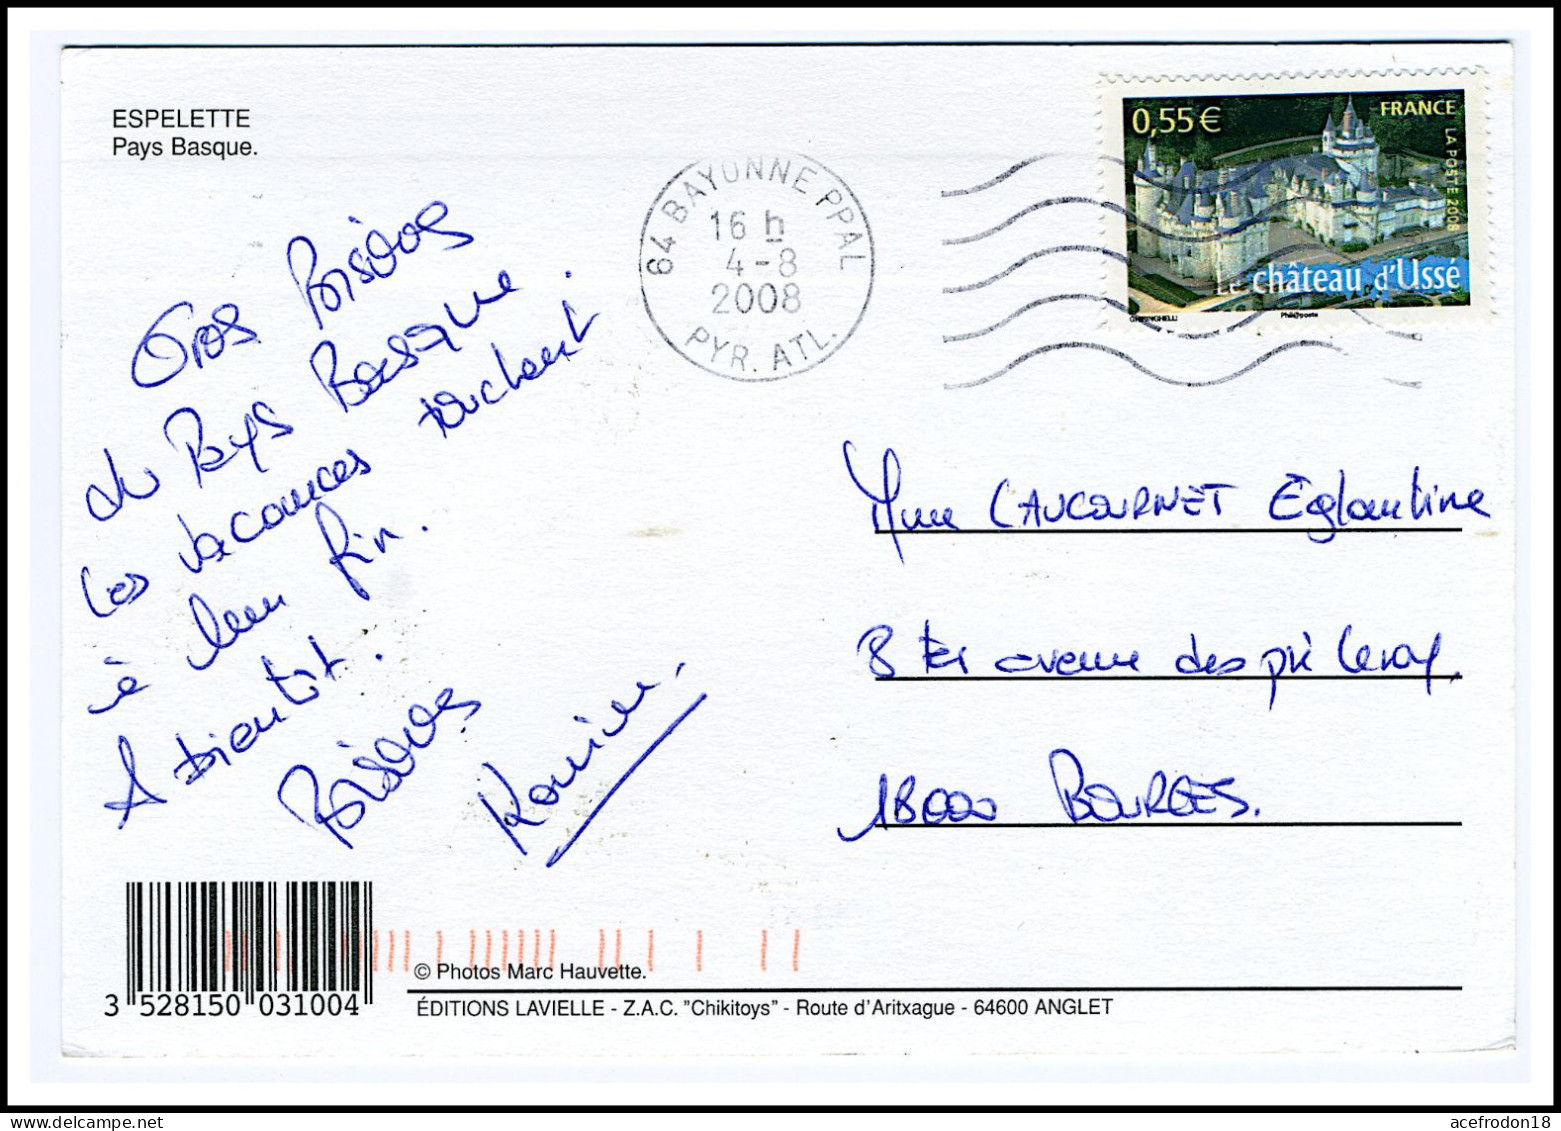 ESPELETTE
Pays Basque.
64 BAYONNE PPAL
16 h
4-8
2008
PYR. ATL.
0,55€
FRANCE
LA POSTE 2008
Le château d'Ussé
Phil@poste
Gros Bisous
du Pays Basque.
Les vacances touchent
à leur fin.
A bientôt.
Bisous
Mme LAUCOURNET Eglantine
8 ter avenue des pré Leroy,
18000 BOURGES.
© Photos Marc Hauvette.
3 528150 031004
ÉDITIONS LAVIELLE - Z.A.C. "Chikitoys" - Route d'Aritxague - 64600 ANGLET
acefrodon18